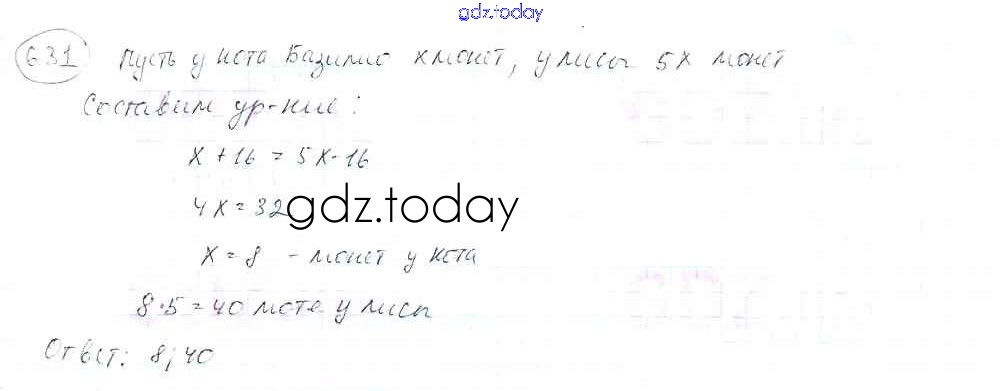 gdz.today
631 Пусть у кота Базилио x монет, у лисы 5x монет
Составим ур-ние:
x + 16 = 5x - 16
4x = 32
gdz.today
x = 8 - монет у кота
8·5 = 40 моте у лисы
Ответ: 8; 40